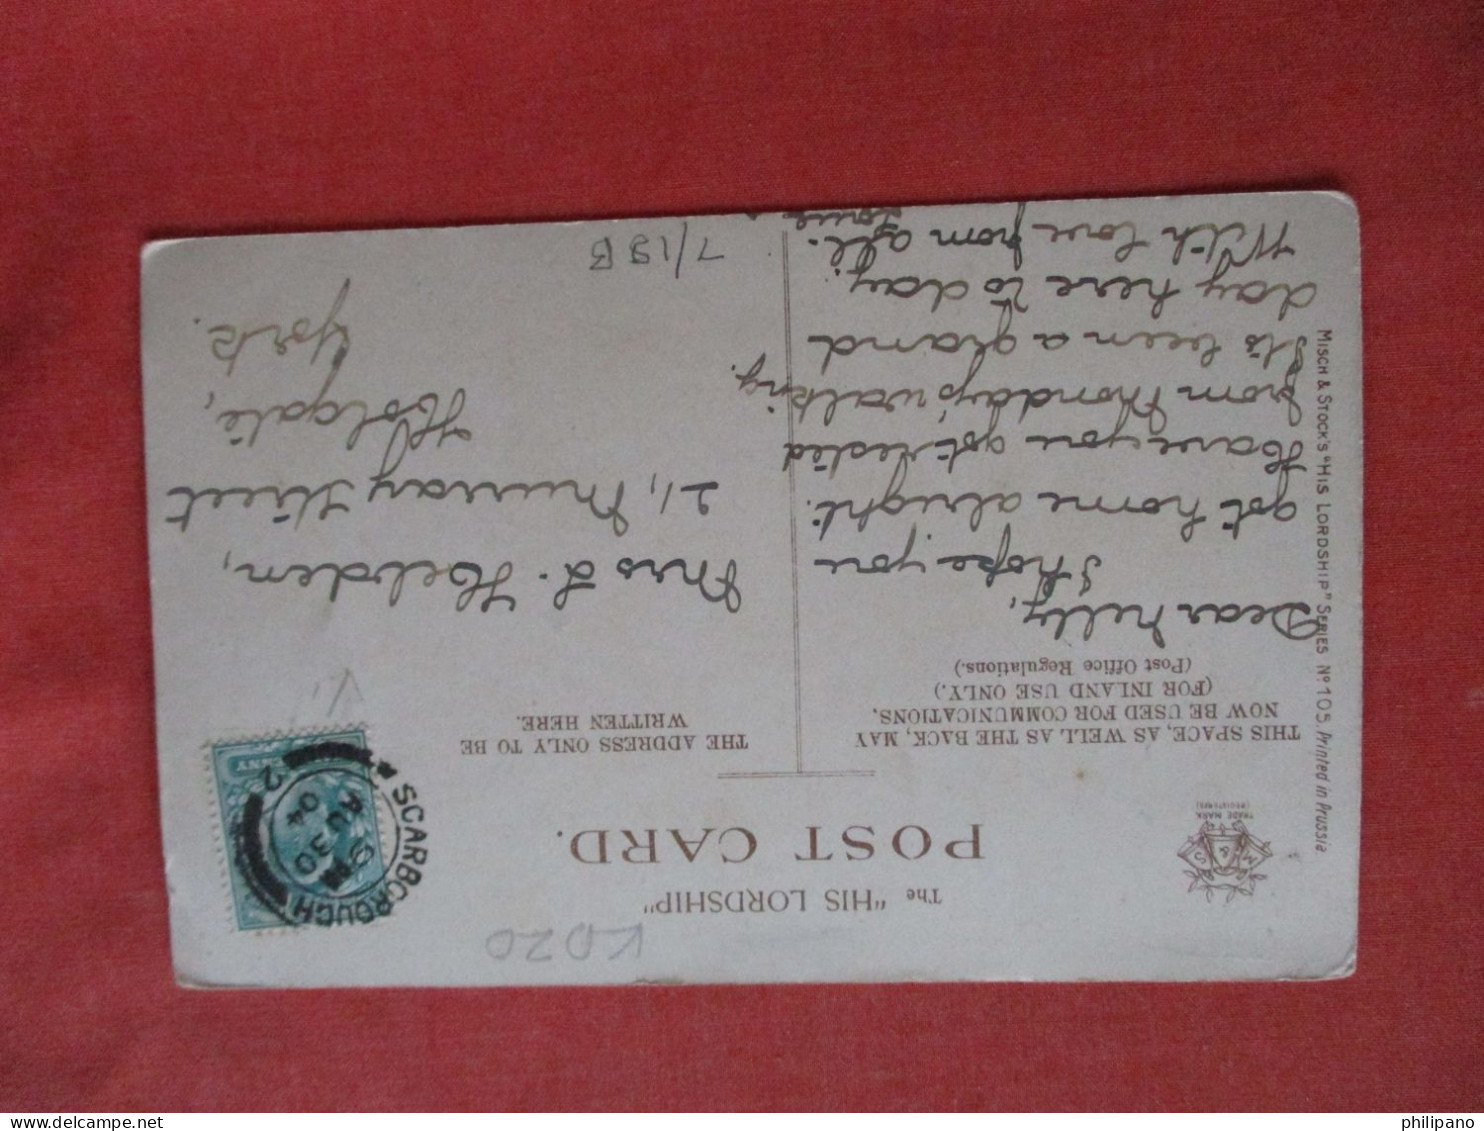 The "HIS LORDSHIP"
POST CARD.
M & S
TRADE MARK
(REGISTERED)
THIS SPACE, AS WELL AS THE BACK, MAY
NOW BE USED FOR COMMUNICATIONS,
(FOR INLAND USE ONLY.)
(Post Office Regulations.)
THE ADDRESS ONLY TO BE
WRITTEN HERE.
Dear Nelly,
I hope you
got home alright.
Have you got rested
from Monday's walking.
It's been a grand
day here to day.
With love from all.
Mrs L. Hebden,
21, Murray Street
Holgate,
York.
SCARBOROUGH
9 PM
AU 30
04
2
KD20
7/19B
MISCH & STOCK'S "HIS LORDSHIP" SERIES No 105. Printed in Prussia
philipano